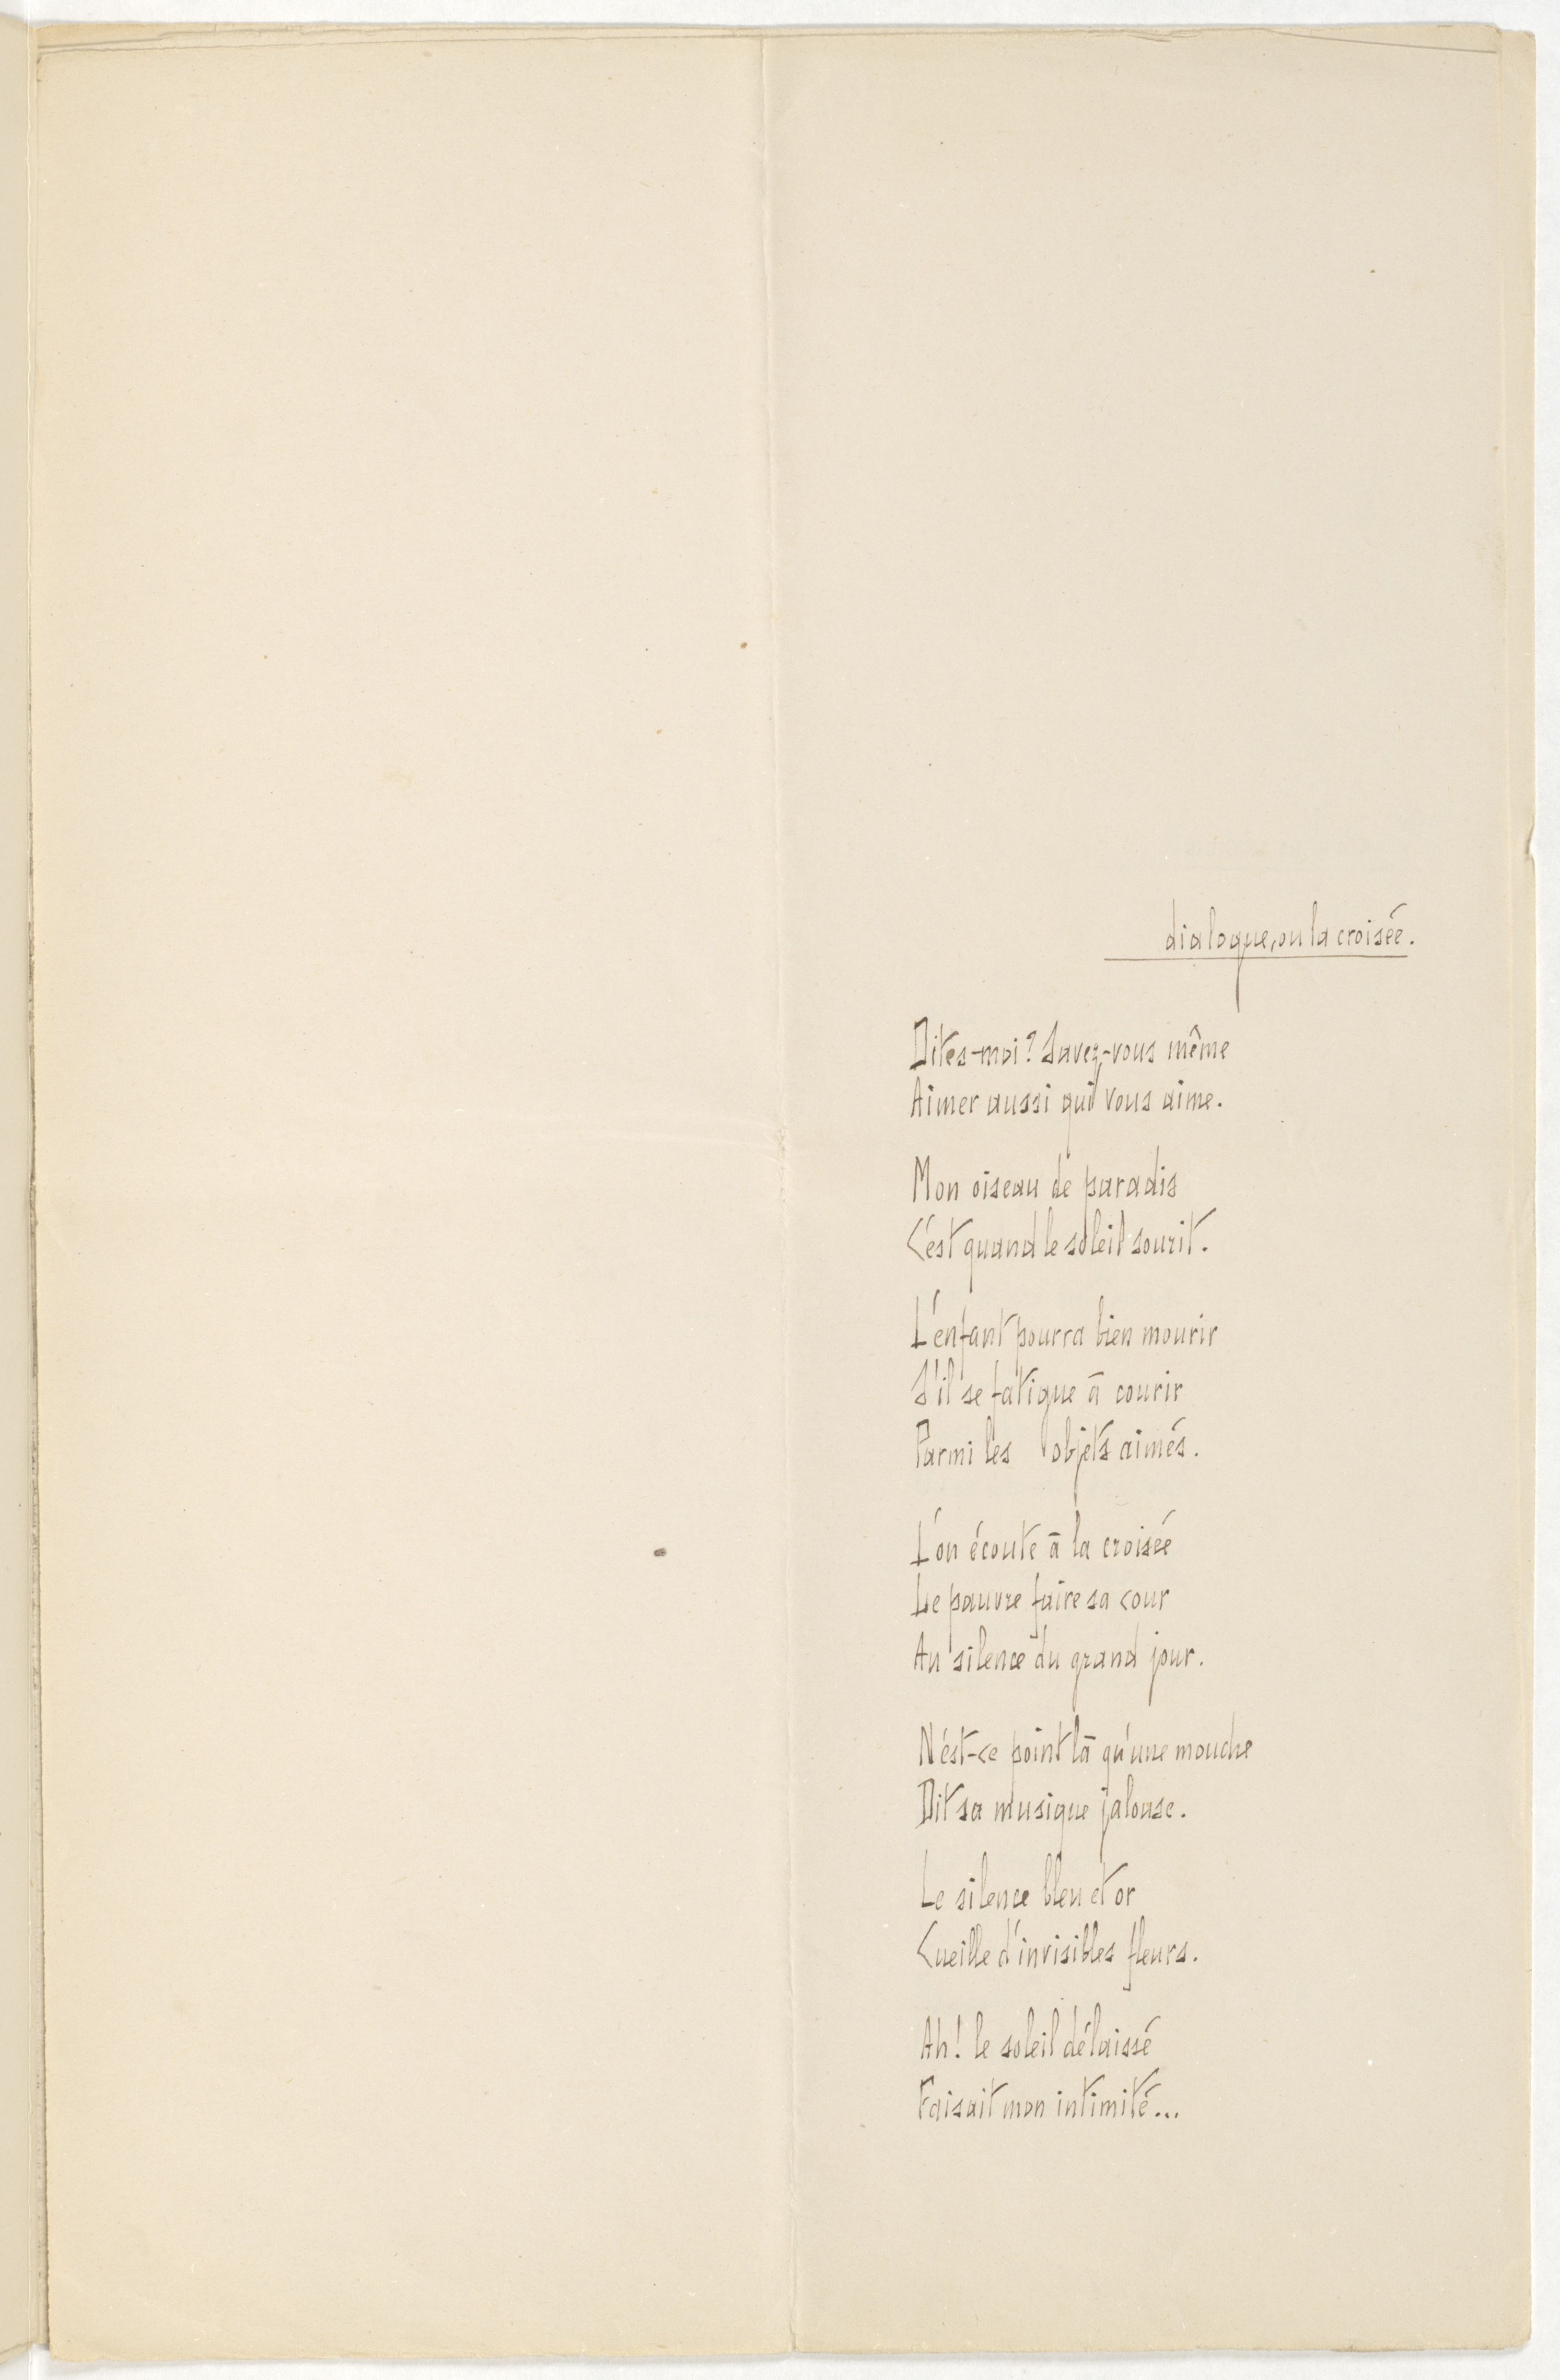 dialogue, ou la croisée.
Dites-moi? Savez-vous même
Aimer aussi qui vous aime.
Mon oiseau de paradis
C'est quand le soleil sourit.
L'enfant pourra bien mourir
S'il se fatigue à courir
Parmi les objets aimés.
L'on écoute à la croisée
Le pauvre faire sa cour
Au silence du grand jour.
N'est-ce point là qu'une mouche
Dit sa musique jalouse.
Le silence bleu et or
Cueille d'invisibles fleurs.
Ah! le soleil délaissé
Faisait mon intimité...